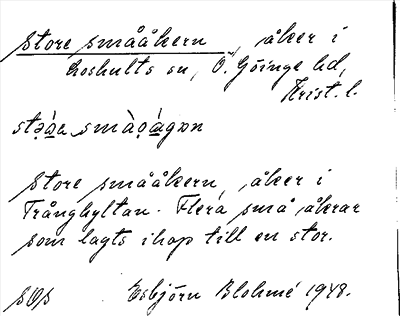 Store småäkern, åker i
Loshults sn, Ö. Göinge hd,
Krist. l.
Store småäkern, åker i
Trånghyltan. Flera små åkrar
som lagts ihop till en stor.
Esbjörn Blohmé 1948.